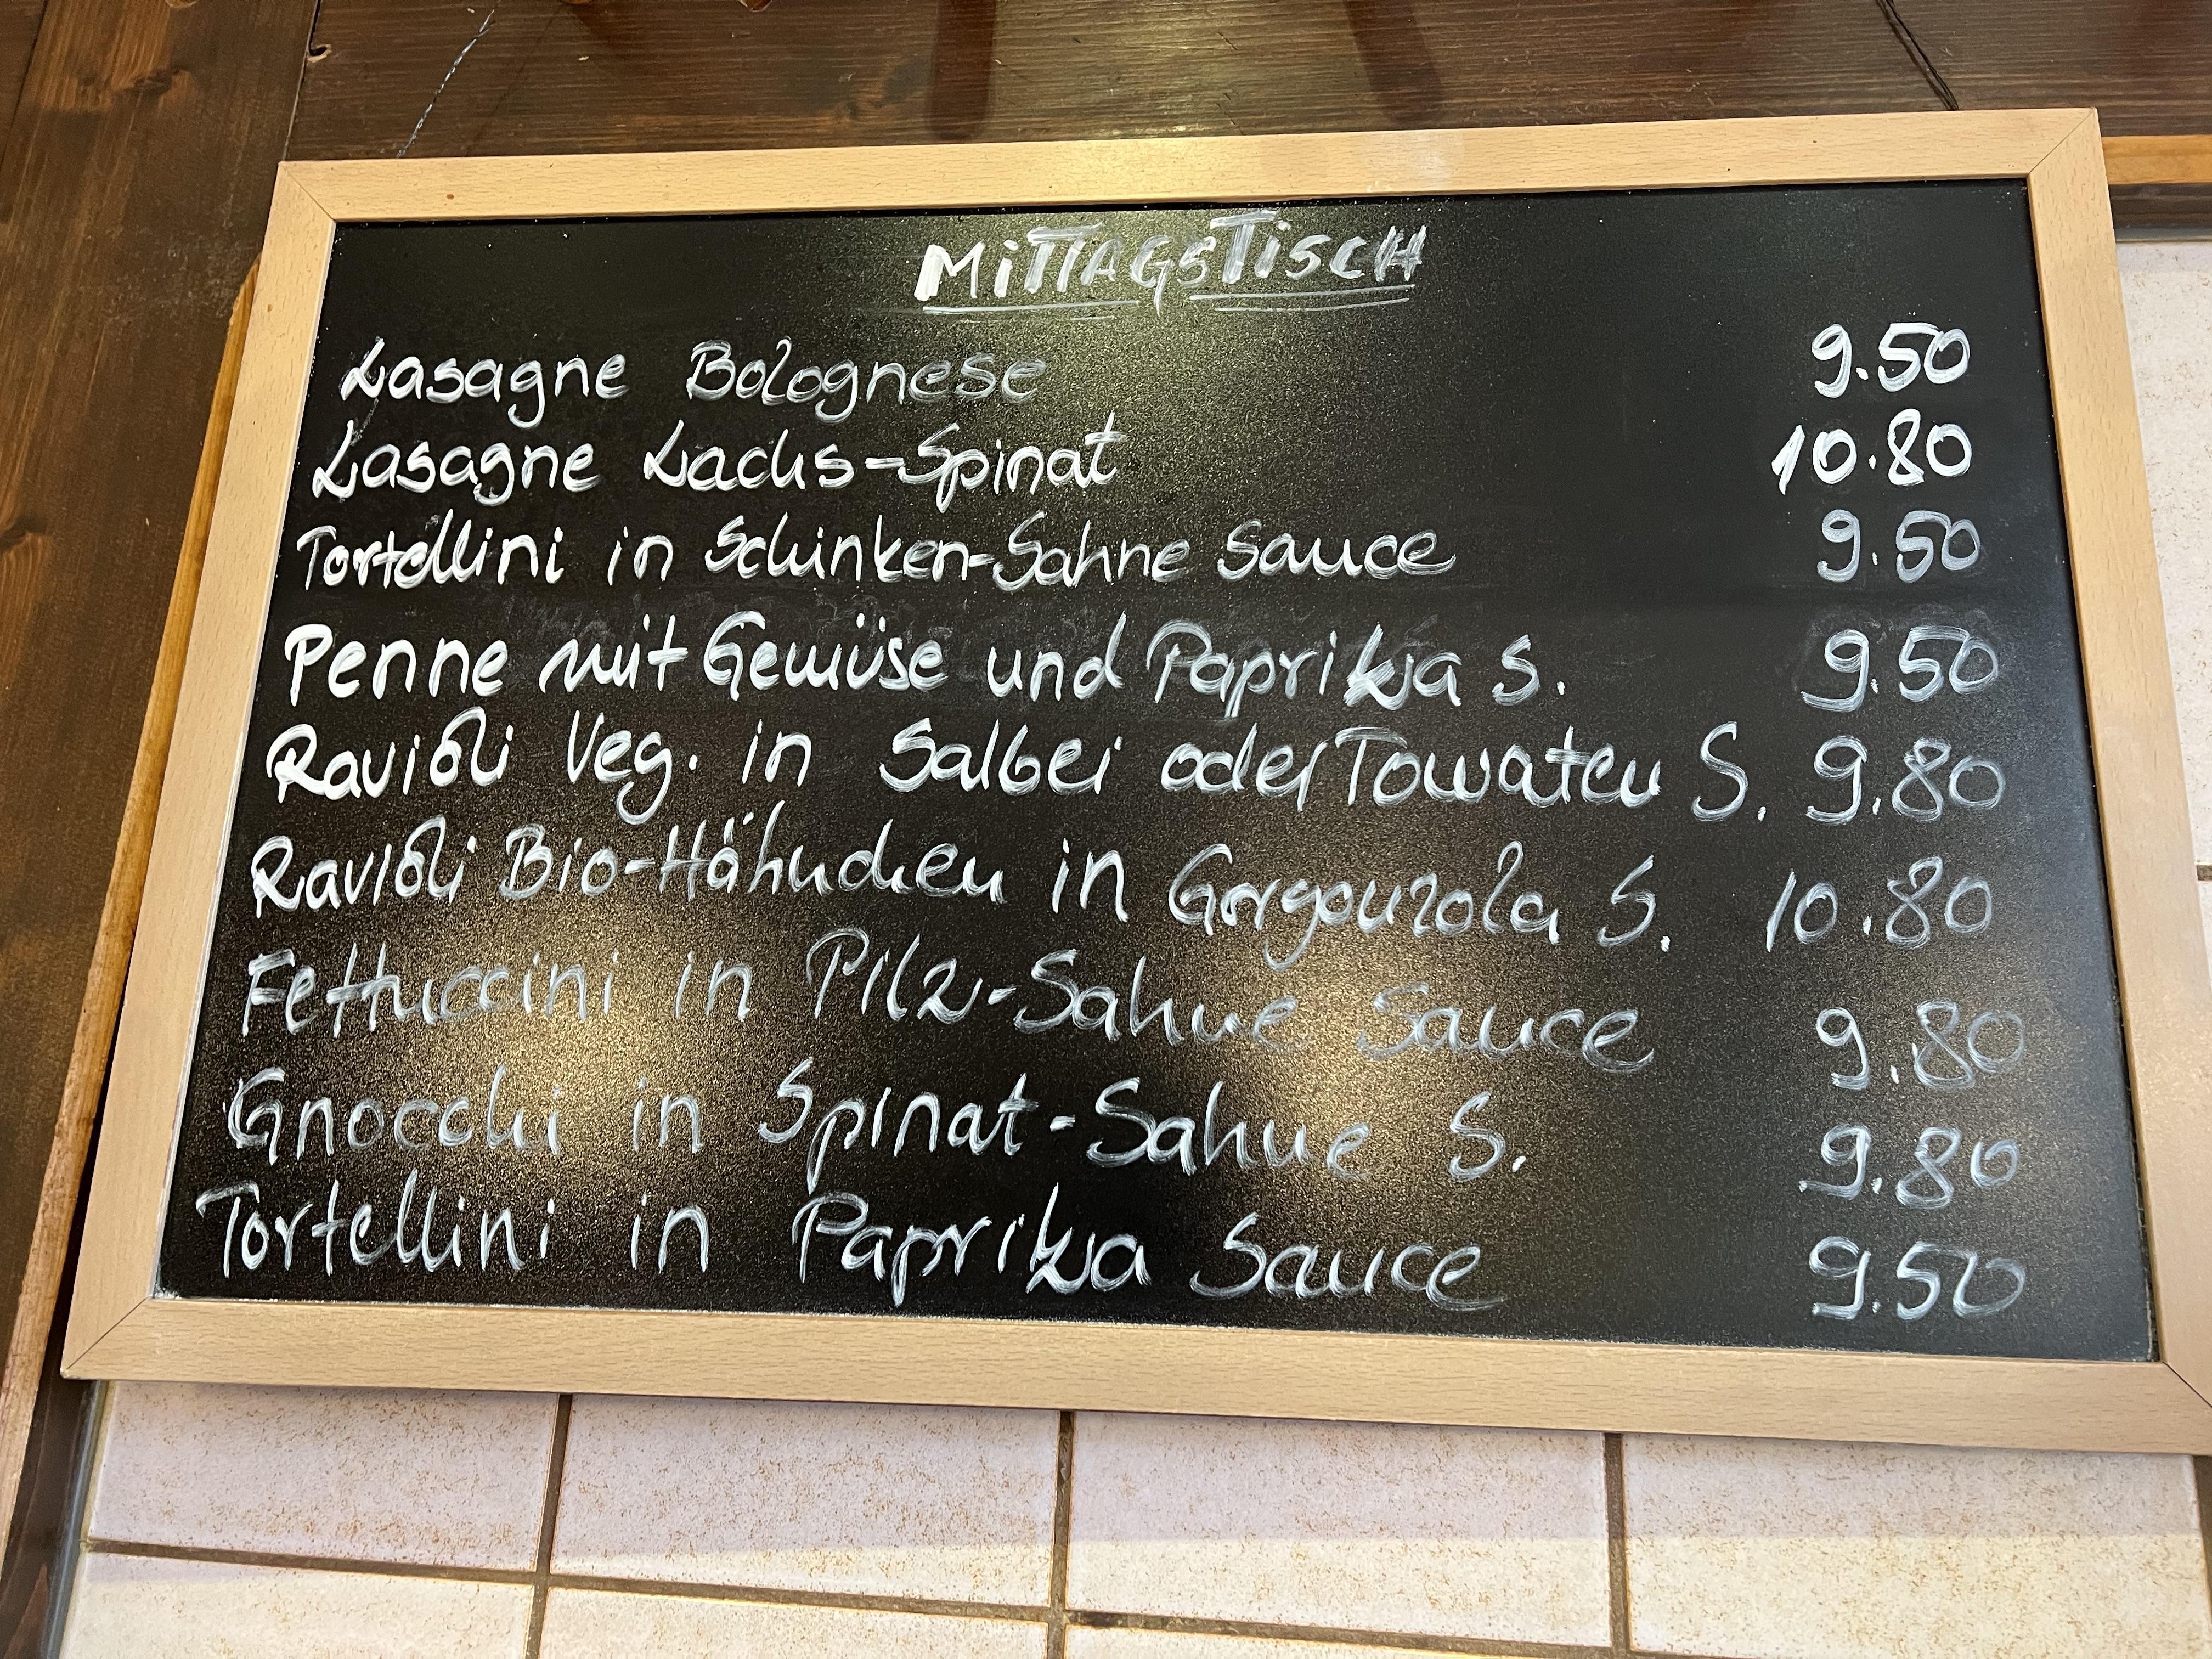 MiTTAGSTiSCH
Lasagne Bolognese 9.50
Lasagne Lachs-Spinat 10.80
Tortellini in Schinken-Sahne Sauce 9.50
Penne mit Gemüse und Paprika S. 9.50
Ravioli Veg. in Salbei oder Tomaten S. 9.80
Ravioli Bio-Hähnchen in Gorgonzola S. 10.80
Fettuccini in Pilz-Sahne Sauce 9.80
Gnocchi in Spinat-Sahne S. 9.80
Tortellini in Paprika Sauce 9.50